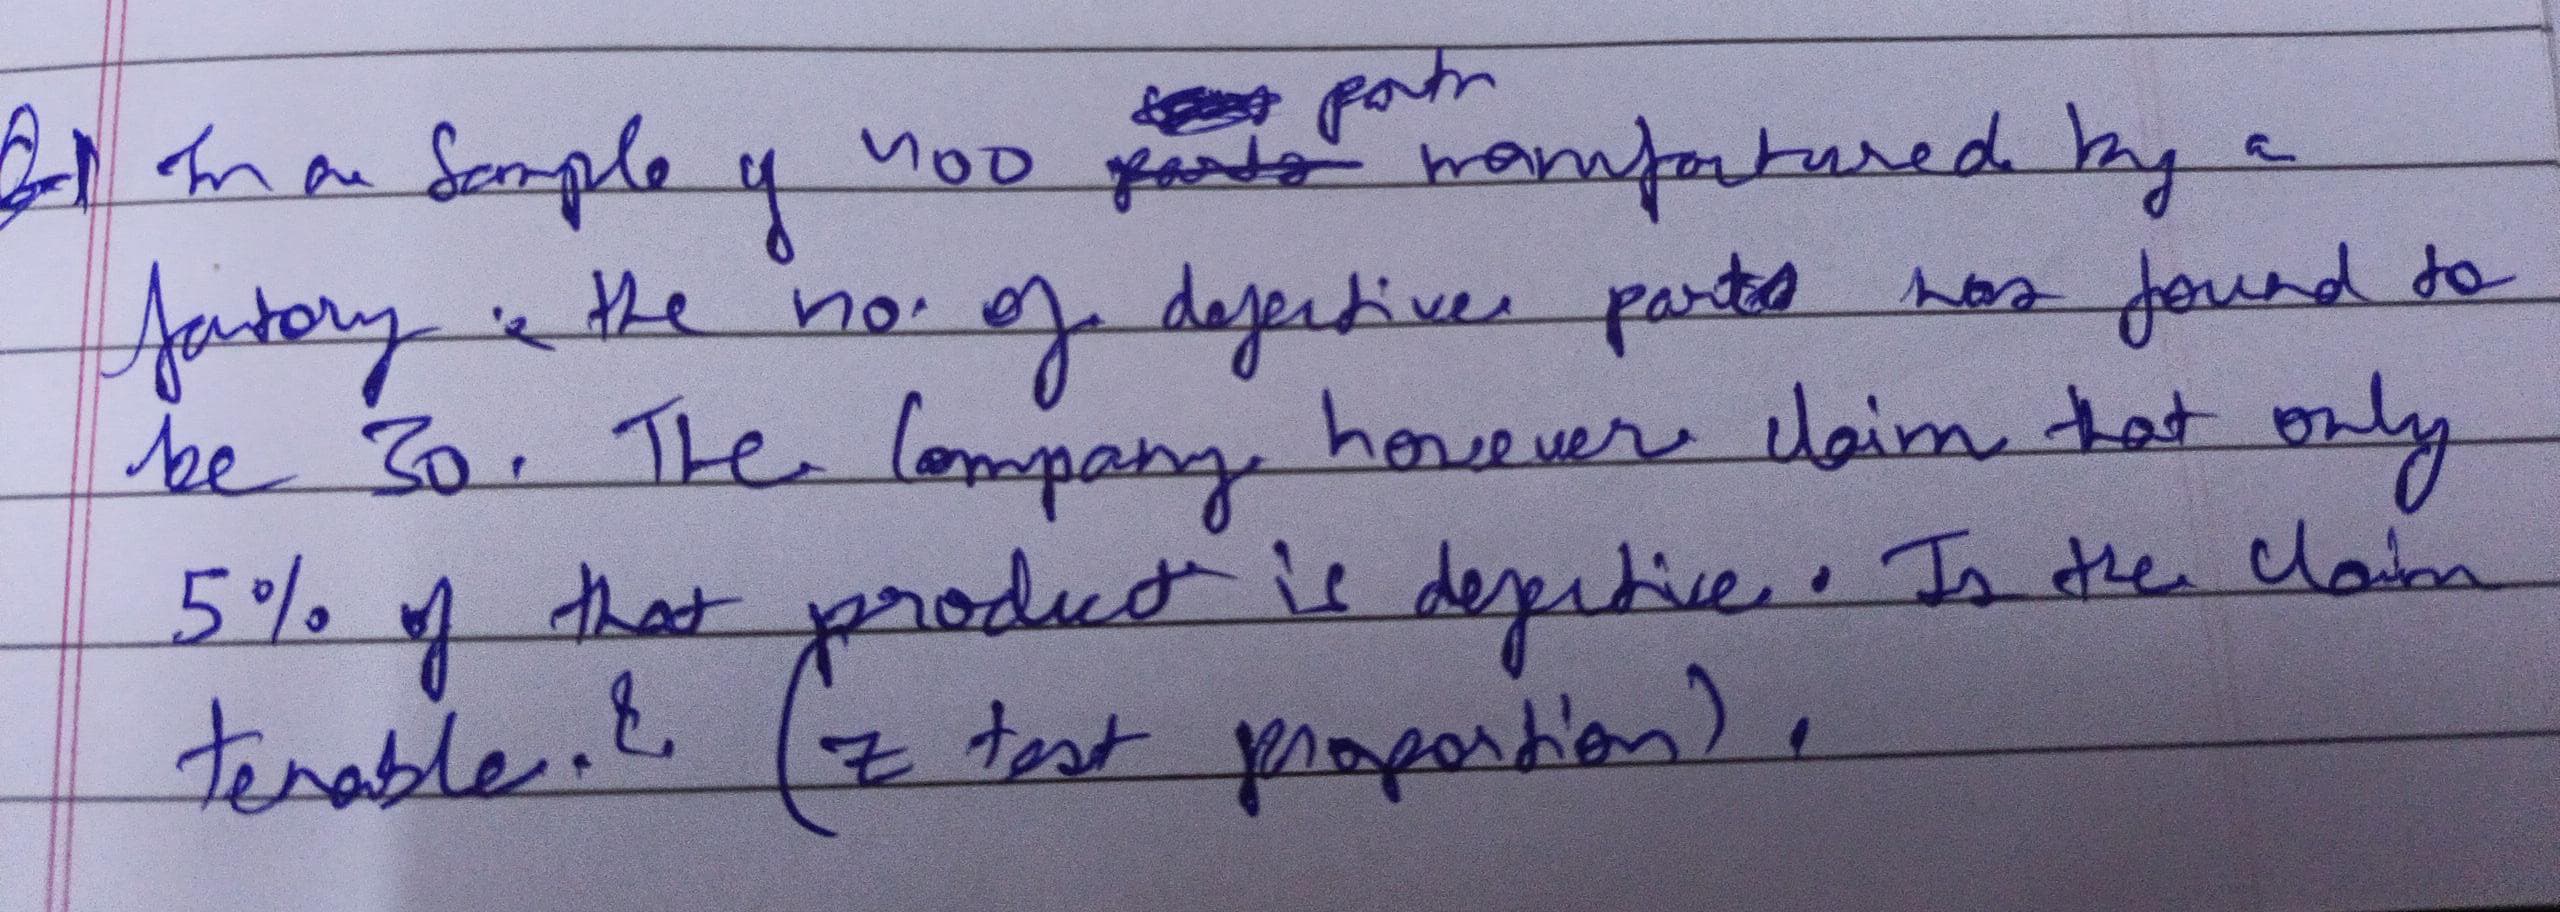 Q-1 In a Sample of 400 parts manufactured by a
factory, the no. of defective parts was found to
be 30. The Company however claim that only
5% of that product is defective. Is the claim
tenable.? (z test proportion).